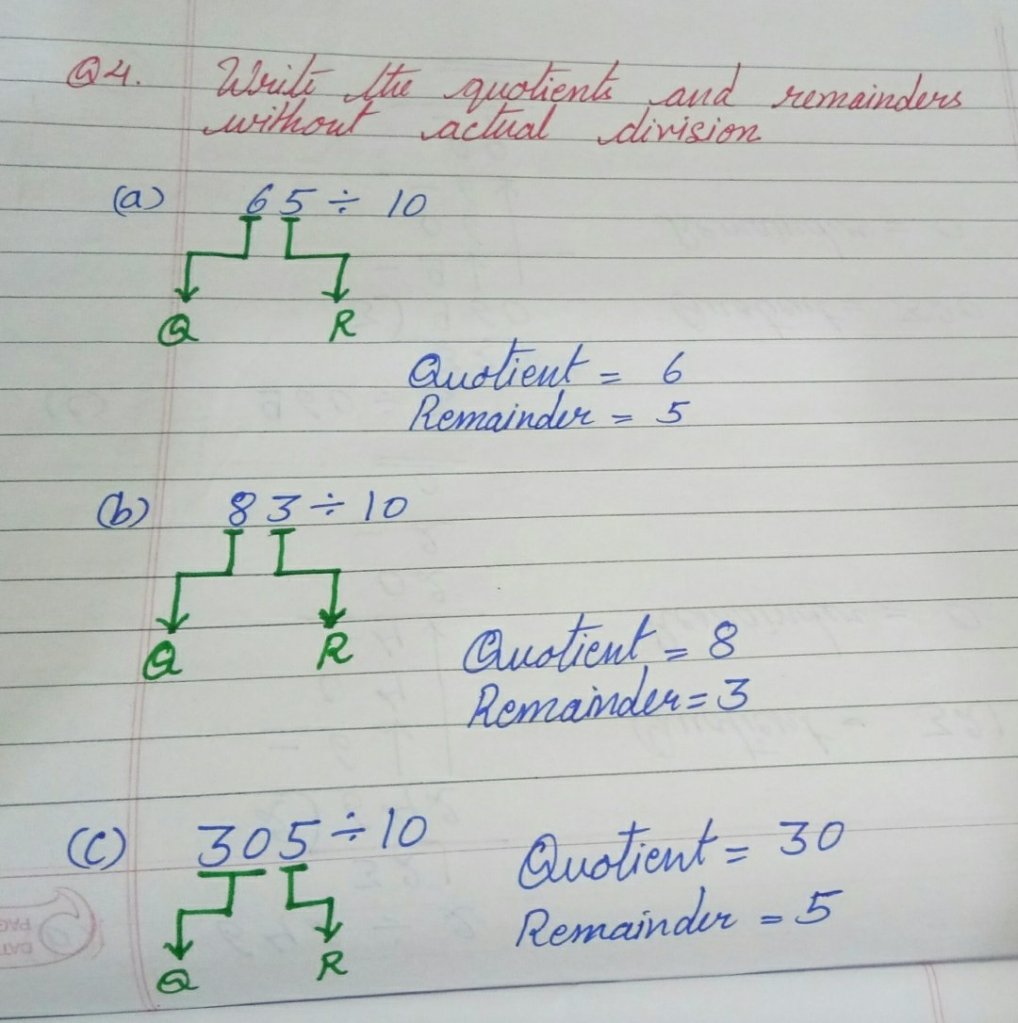 Q4. Write the quotients and remainders
without actual division
(a) 65 ÷ 10
Q R
Quotient = 6
Remainder = 5
(b) 83 ÷ 10
Q R
Quotient = 8
Remainder = 3
(C) 305 ÷ 10 Quotient = 30
Q R Remainder = 5